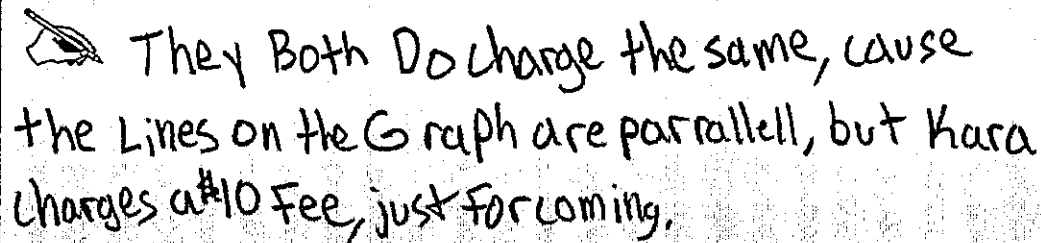 They Both Do charge the same, cause
the Lines on the Graph are parrallell, but Kara
charges a $10 Fee, just for coming.